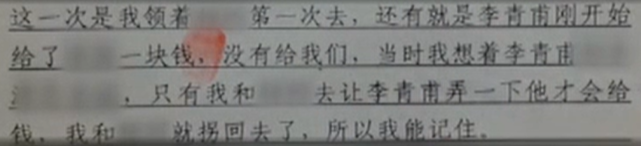 这一次是我领着 第一次去，还有就是李青甫刚开始
给了 一块钱，没有给我们，当时我想着李青甫
，只有我和 去让李青甫弄一下他才会给
钱，我和 就拐回去了，所以我能记住。